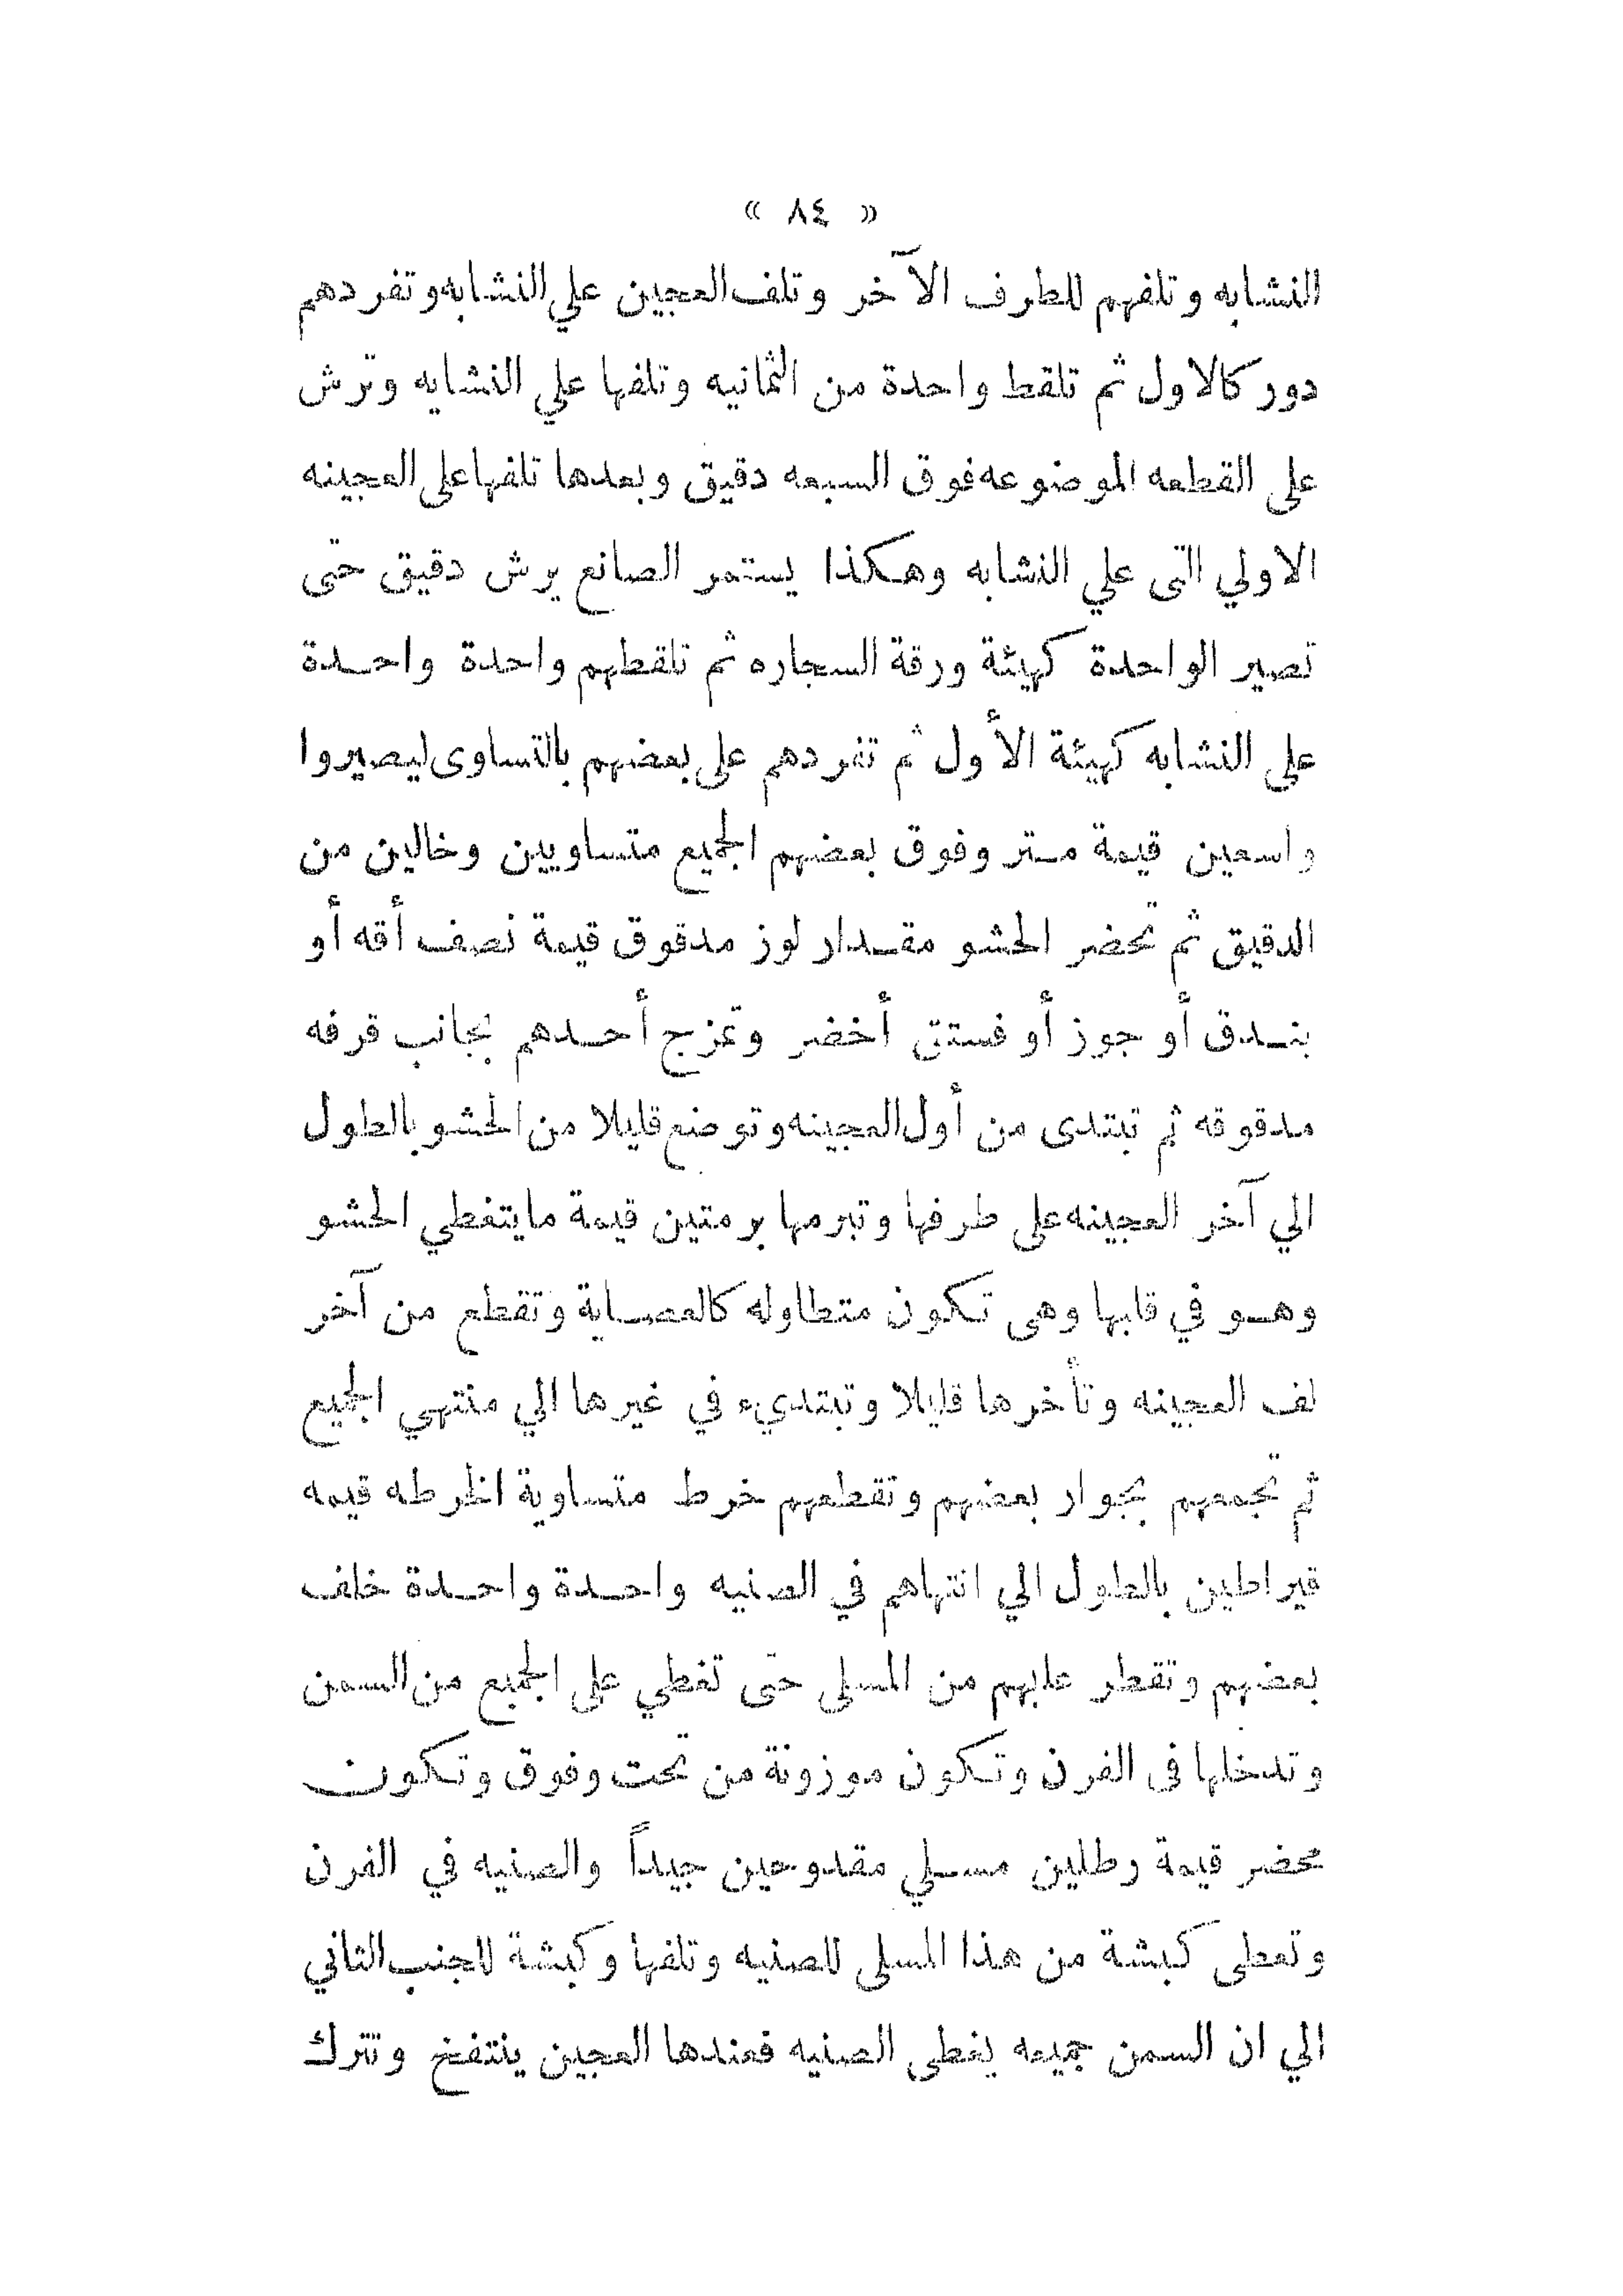 « ٨٤ »
النشابه وتلفهم للطرف الآخر وتلف العجين علي النشابه وتفردهم
دور كالاول ثم تلقط واحدة من الثمانيه وتلفها علي النشابه وترش
على القطعه الموضوعه فوق السبعه دقيق وبعدها تلفها على العجينه
الاولي التى علي النشابه وهكذا يستمر الصانع يرش دقيق حتى
تصير الواحدة كهيئة ورقة السجاره ثم تلقطهم واحدة واحدة
على النشابه كهيئة الأول ثم تفردهم على بعضهم بالتساوى ليصيروا
واسعين قيمة متر وفوق بعضهم الجميع متساويين وخالين من
الدقيق ثم تحضر الحشو مقدار لوز مدقوق قيمة نصف أقه أو
بندق أو جوز أو فستق أخضر وتمزج أحدهم بجانب قرفه
مدقوقه ثم تبتدى من أول العجينه وتوضع قليلا من الحشو بالطول
الي آخر العجينه على طرفها وتبرمها برمتين قيمة مايتغطي الحشو
وهو في قلبها وهى تكون متطاوله كالعصاية وتقطع من آخر
لف العجينه وتأخرها قليلا وتبتديء في غيرها الي منتهي الجميع
ثم تجمعهم بجوار بعضهم وتقطعهم خرط متساوية الخرطه قيمه
قيراطين بالطول الي انتهاهم في الصنيه واحدة واحدة خلف
بعضهم وتقطر عليهم من المسلى حتى تغطي على الجميع من السمن
وتدخلها فى الفرن وتكون موزونة من تحت وفوق وتكون
محضر قيمة رطلين مسلي مقدوحين جيداً والصنيه في الفرن
وتعطى كبشة من هذا المسلى للصنيه وتلفها وكبشة للجنب الثاني
الي ان السمن جميعه يغطى الصنيه فعندها العجين ينتفخ وتترك